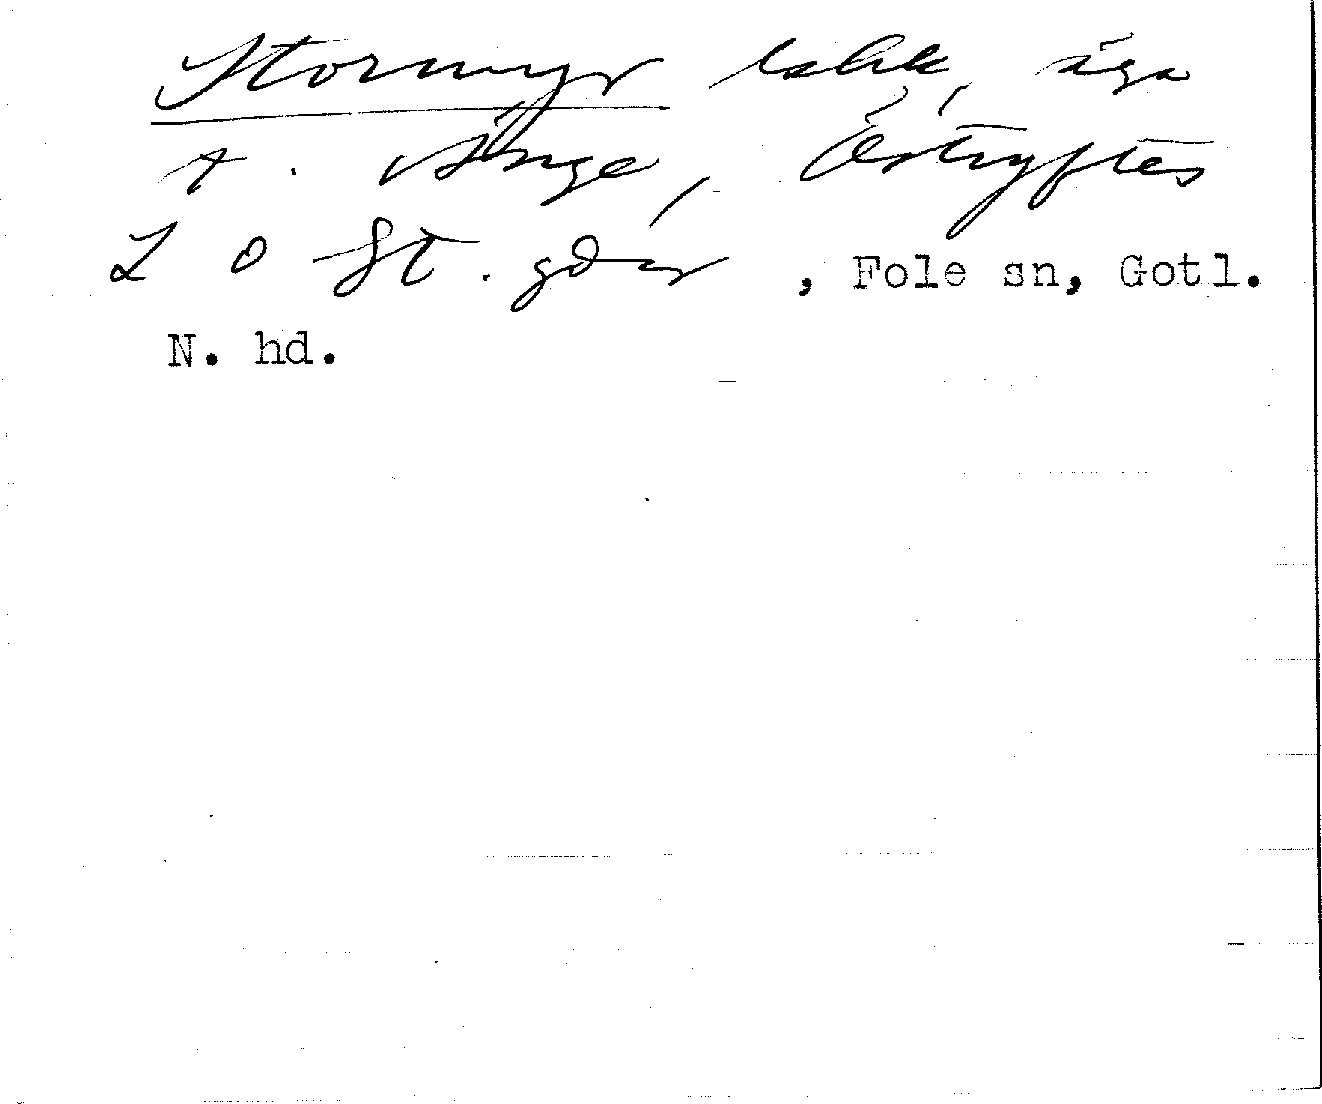 Stormyr lokk, äga
t. Ånge, Österyftes
L o St. gdar, Fole sn, Gotl.
N. hd.